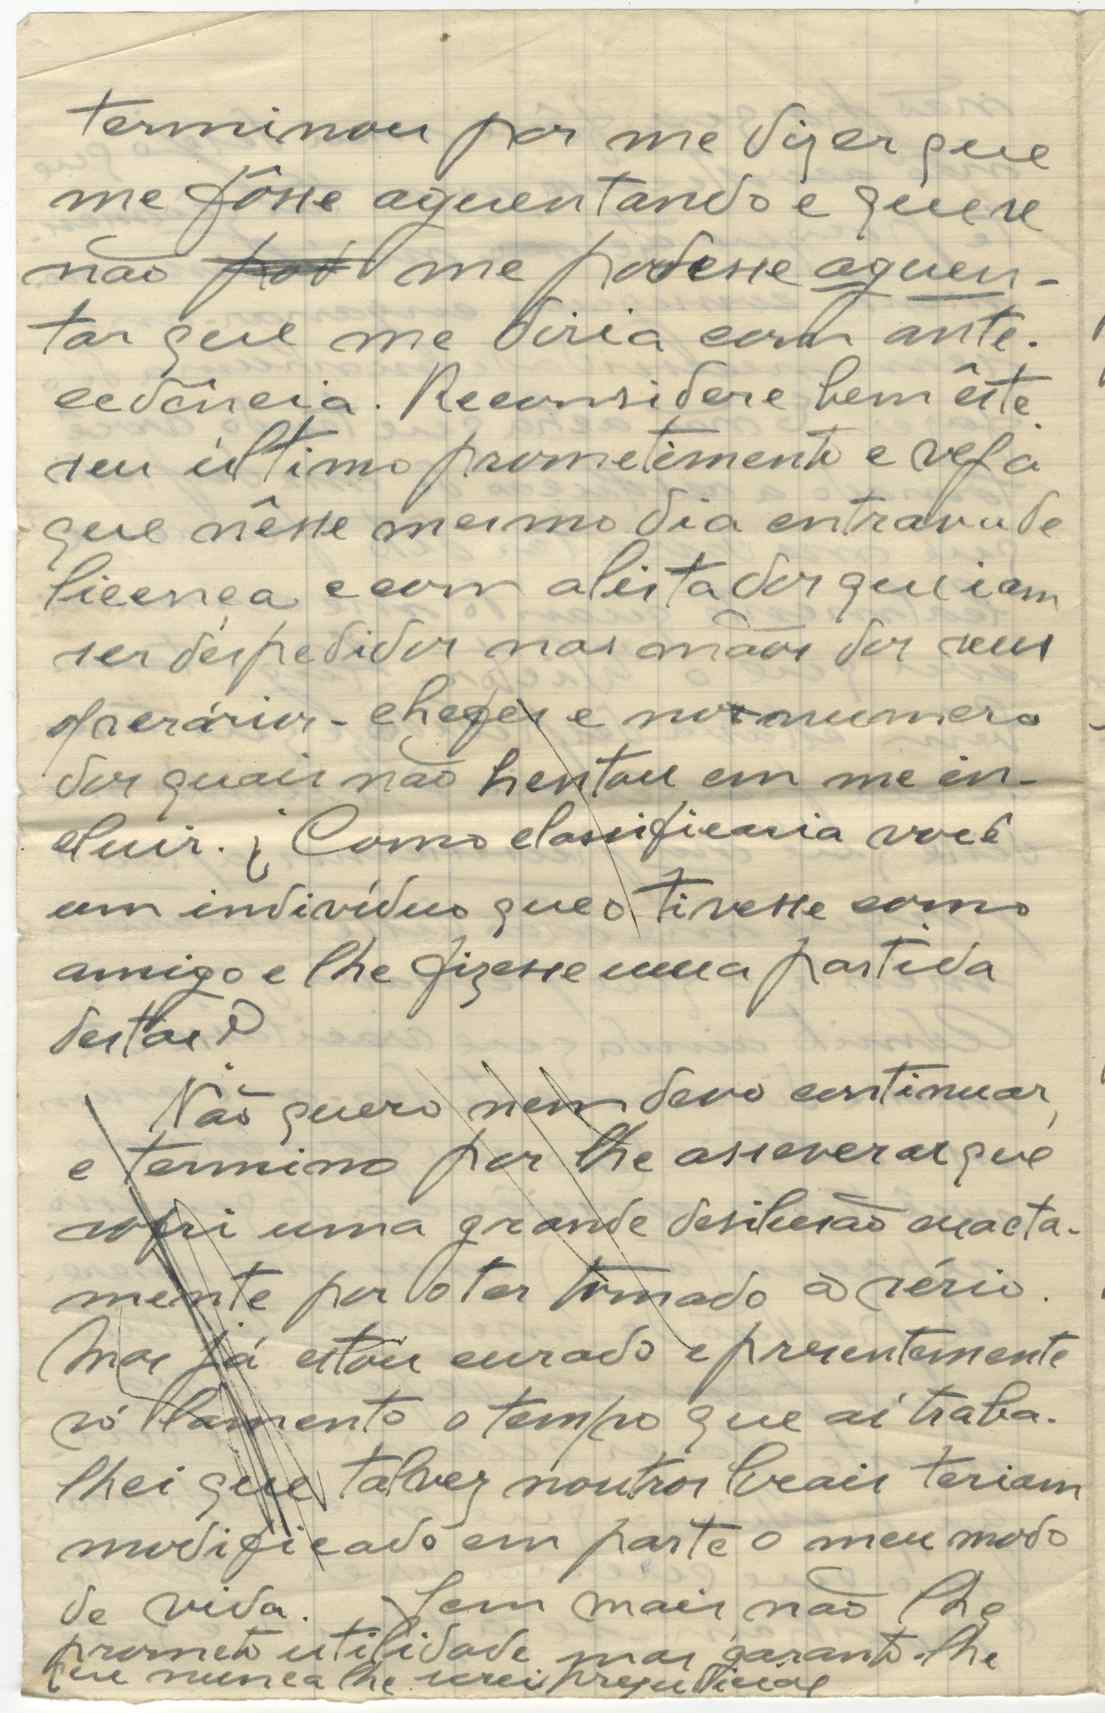 terminou por me dizer que
me fôsse aguentando e que se
não pod me podesse aguen-
tar que me diria com ante-
cedência. Reconsidere bem êste
seu último prometimento e veja
que nêsse mesmo dia entrava de
licença e com a lista dos que iam
ser déspedidos nas mãos dos seus
operários-chefes e no numero
dos quais não hesitou em me in-
cluir. ¿Como classificaria você
um indivíduo que o tivesse como
amigo e lhe fizesse uma partida
destas?
Não quero nem devo continuar,
e termino por lhe asseverar que
sofri uma grande desilusão exacta-
mente por o ter tomado a sério.
Mas já estou curado e presentemente
só lamento o tempo que aí traba-
lhei que talvez noutros locais teriam
modificado em parte o meu modo
de vida. Sem mais não lhe
prometo utilidade mas garanto-lhe
que nunca lhe serei prejudicial